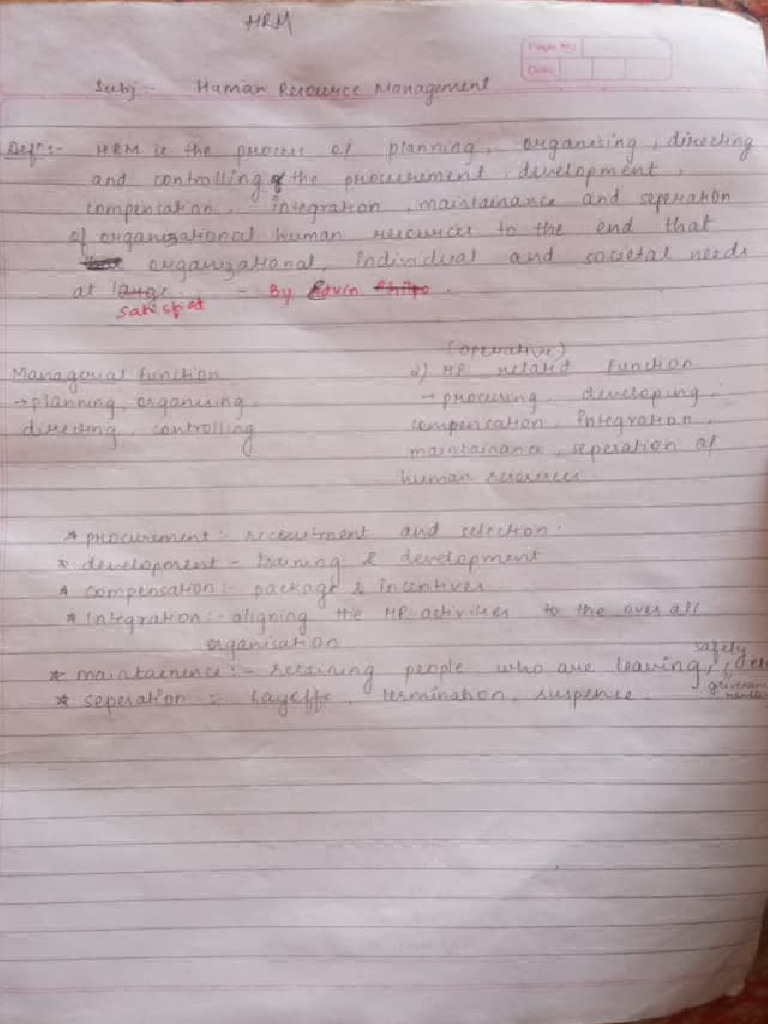 HRM
Page No
Date
Subj:- Human Resource Management
Defn:- HRM is the process of planning, organising, directing
and controlling of the procurement, development,
compensation, integration, maintainance and seperation
of organizational human resources to the end that
organizational, individual and societal needs
at large. - By Edvin
satisfied
(operative)
Managerial function 2) HR related function
→ planning, organising, → procuring, developing,
directing, controlling compensation, Integration,
maintainance, seperation of
human resources
* procurement:- recruitment and selection.
* development - training & development
* compensation:- package & incentives
* integration:- aligning the HR activities to the over all
organisation
safety
* maintainence:- retaining people who are leaving,
* seperation :- Layoffs, termination, suspense.